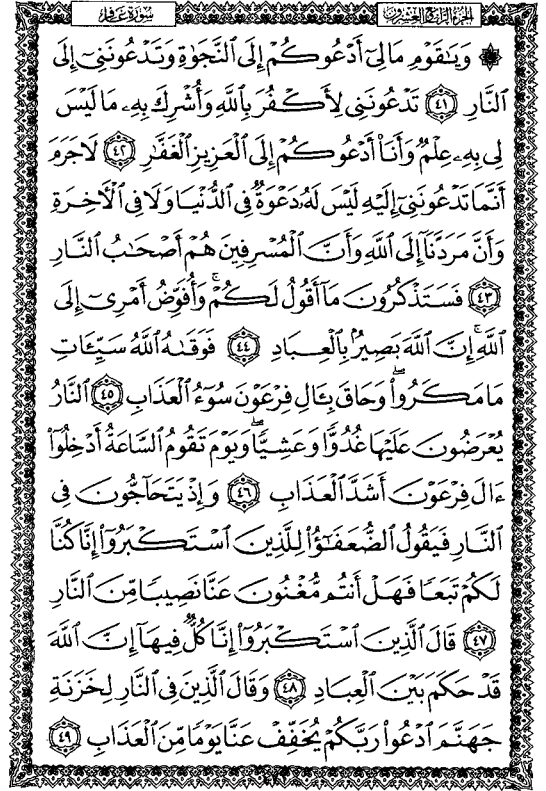 الجزء الرابع والعشرون سورة غافر
۞ وَيَٰقَوْمِ مَا لِىٓ أَدْعُوكُمْ إِلَى ٱلنَّجَوٰةِ وَتَدْعُونَنِىٓ إِلَى
ٱلنَّارِ ٤١ تَدْعُونَنِى لِأَكْفُرَ بِٱللَّهِ وَأُشْرِكَ بِهِۦ مَا لَيْسَ
لِى بِهِۦ عِلْمٌ وَأَنَا۠ أَدْعُوكُمْ إِلَى ٱلْعَزِيزِ ٱلْغَفَّٰرِ ٤٢ لَا جَرَمَ
أَنَّمَا تَدْعُونَنِىٓ إِلَيْهِ لَيْسَ لَهُۥ دَعْوَةٌ فِى ٱلدُّنْيَا وَلَا فِى ٱلْأَخِرَةِ
وَأَنَّ مَرَدَّنَآ إِلَى ٱللَّهِ وَأَنَّ ٱلْمُسْرِفِينَ هُمْ أَصْحَٰبُ ٱلنَّارِ
٤٣ فَسَتَذْكُرُونَ مَآ أَقُولُ لَكُمْ ۚ وَأُفَوِّضُ أَمْرِىٓ إِلَى
ٱللَّهِ ۚ إِنَّ ٱللَّهَ بَصِيرٌۢ بِٱلْعِبَادِ ٤٤ فَوَقَىٰهُ ٱللَّهُ سَيِّـَٔاتِ
مَا مَكَرُوا۟ ۖ وَحَاقَ بِـَٔالِ فِرْعَوْنَ سُوٓءُ ٱلْعَذَابِ ٤٥ ٱلنَّارُ
يُعْرَضُونَ عَلَيْهَا غُدُوًّا وَعَشِيًّا ۖ وَيَوْمَ تَقُومُ ٱلسَّاعَةُ أَدْخِلُوٓا۟
ءَالَ فِرْعَوْنَ أَشَدَّ ٱلْعَذَابِ ٤٦ وَإِذْ يَتَحَآجُّونَ فِى
ٱلنَّارِ فَيَقُولُ ٱلضُّعَفَٰٓؤُا۟ لِلَّذِينَ ٱسْتَكْبَرُوٓا۟ إِنَّا كُنَّا
لَكُمْ تَبَعًا فَهَلْ أَنتُم مُّغْنُونَ عَنَّا نَصِيبًا مِّنَ ٱلنَّارِ
٤٧ قَالَ ٱلَّذِينَ ٱسْتَكْبَرُوٓا۟ إِنَّا كُلٌّ فِيهَآ إِنَّ ٱللَّهَ
قَدْ حَكَمَ بَيْنَ ٱلْعِبَادِ ٤٨ وَقَالَ ٱلَّذِينَ فِى ٱلنَّارِ لِخَزَنَةِ
جَهَنَّمَ ٱدْعُوا۟ رَبَّكُمْ يُخَفِّفْ عَنَّا يَوْمًا مِّنَ ٱلْعَذَابِ ٤٩